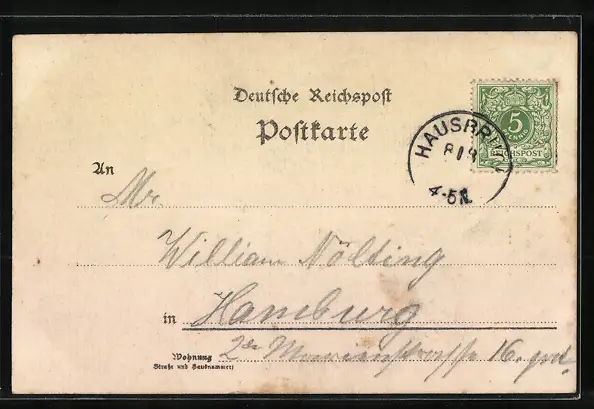 Deutsche Reichspost
Postkarte
5
PFENNIG
REICHSPOST
HAUSBRUCH
4-5N.
An
Mr.
William Nölting
in Hamburg
Wohnung
(Straße und Hausnummer)
2te Marienstrasse 16. prt.